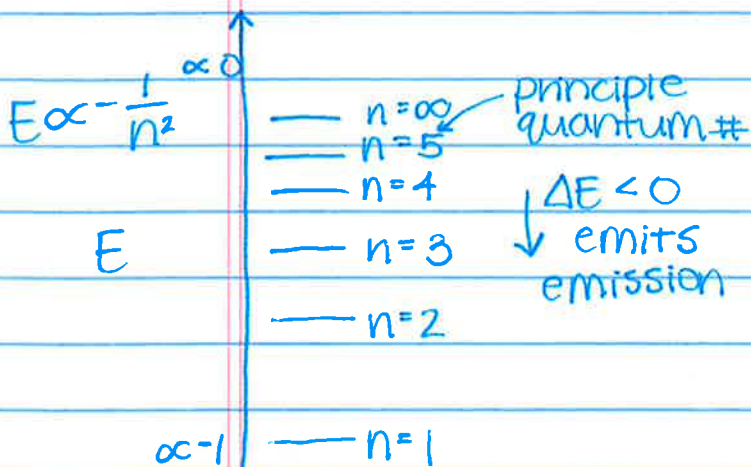 ∝ 0
E ∝ - 1/n²
n = ∞
principle
quantum #
n = 5
n = 4
ΔE < 0
emits
emission
E
n = 3
n = 2
∝ -1
n = 1